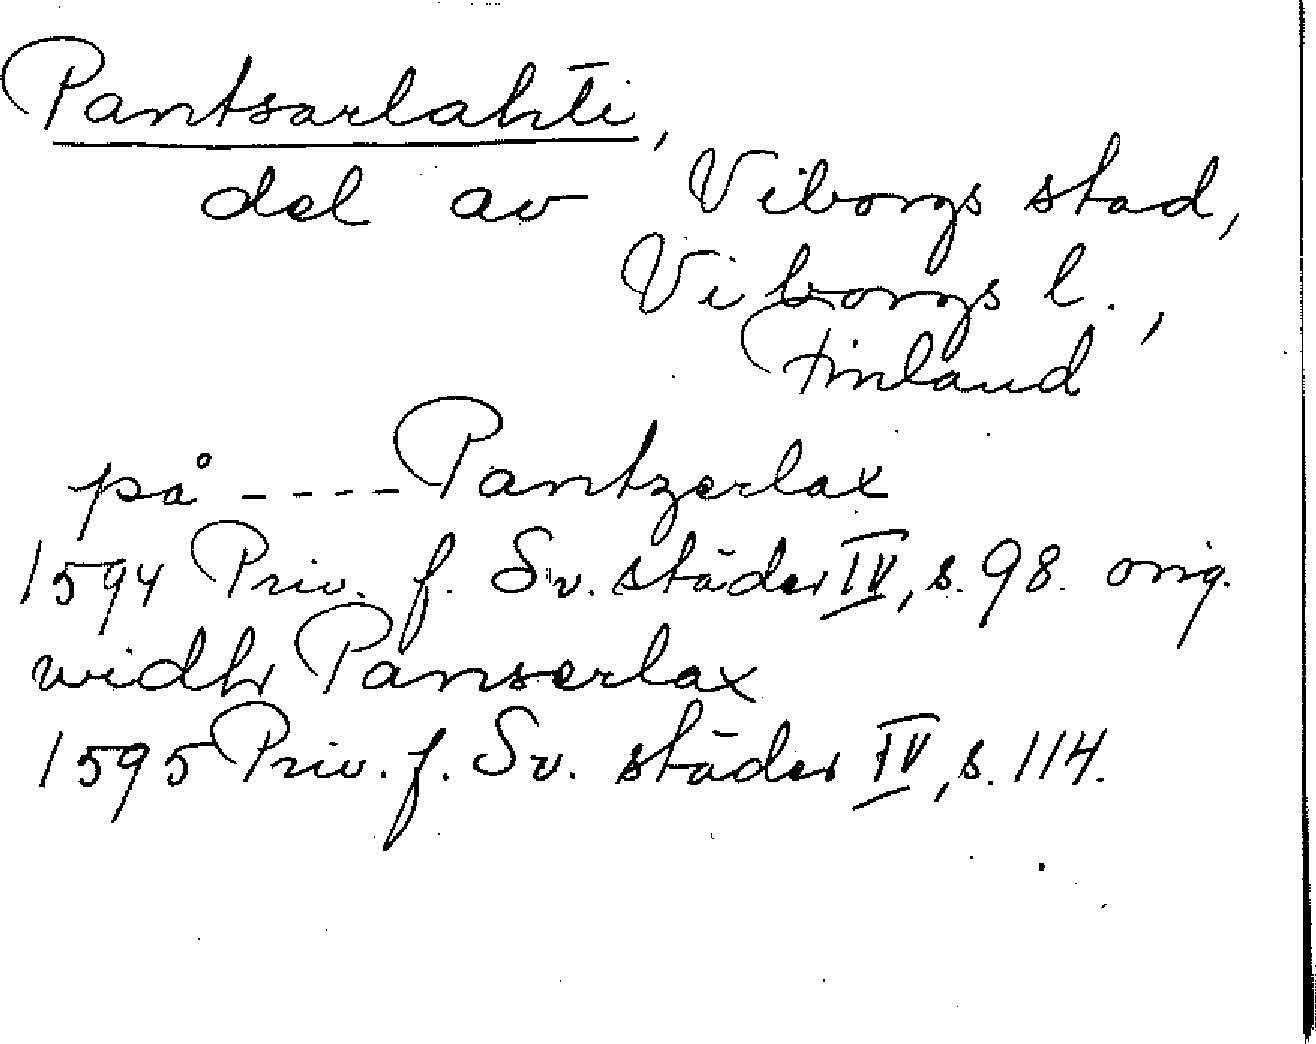 Pantsarlahti,
del av Viborgs stad,
Viborgs l.,
Finland
på ---- Pantzerlax
1594 Priv. f. Sv. städer IV, s. 98. orig.
widh Panserlax
1595 Priv. f. Sv. städer IV, s. 114.